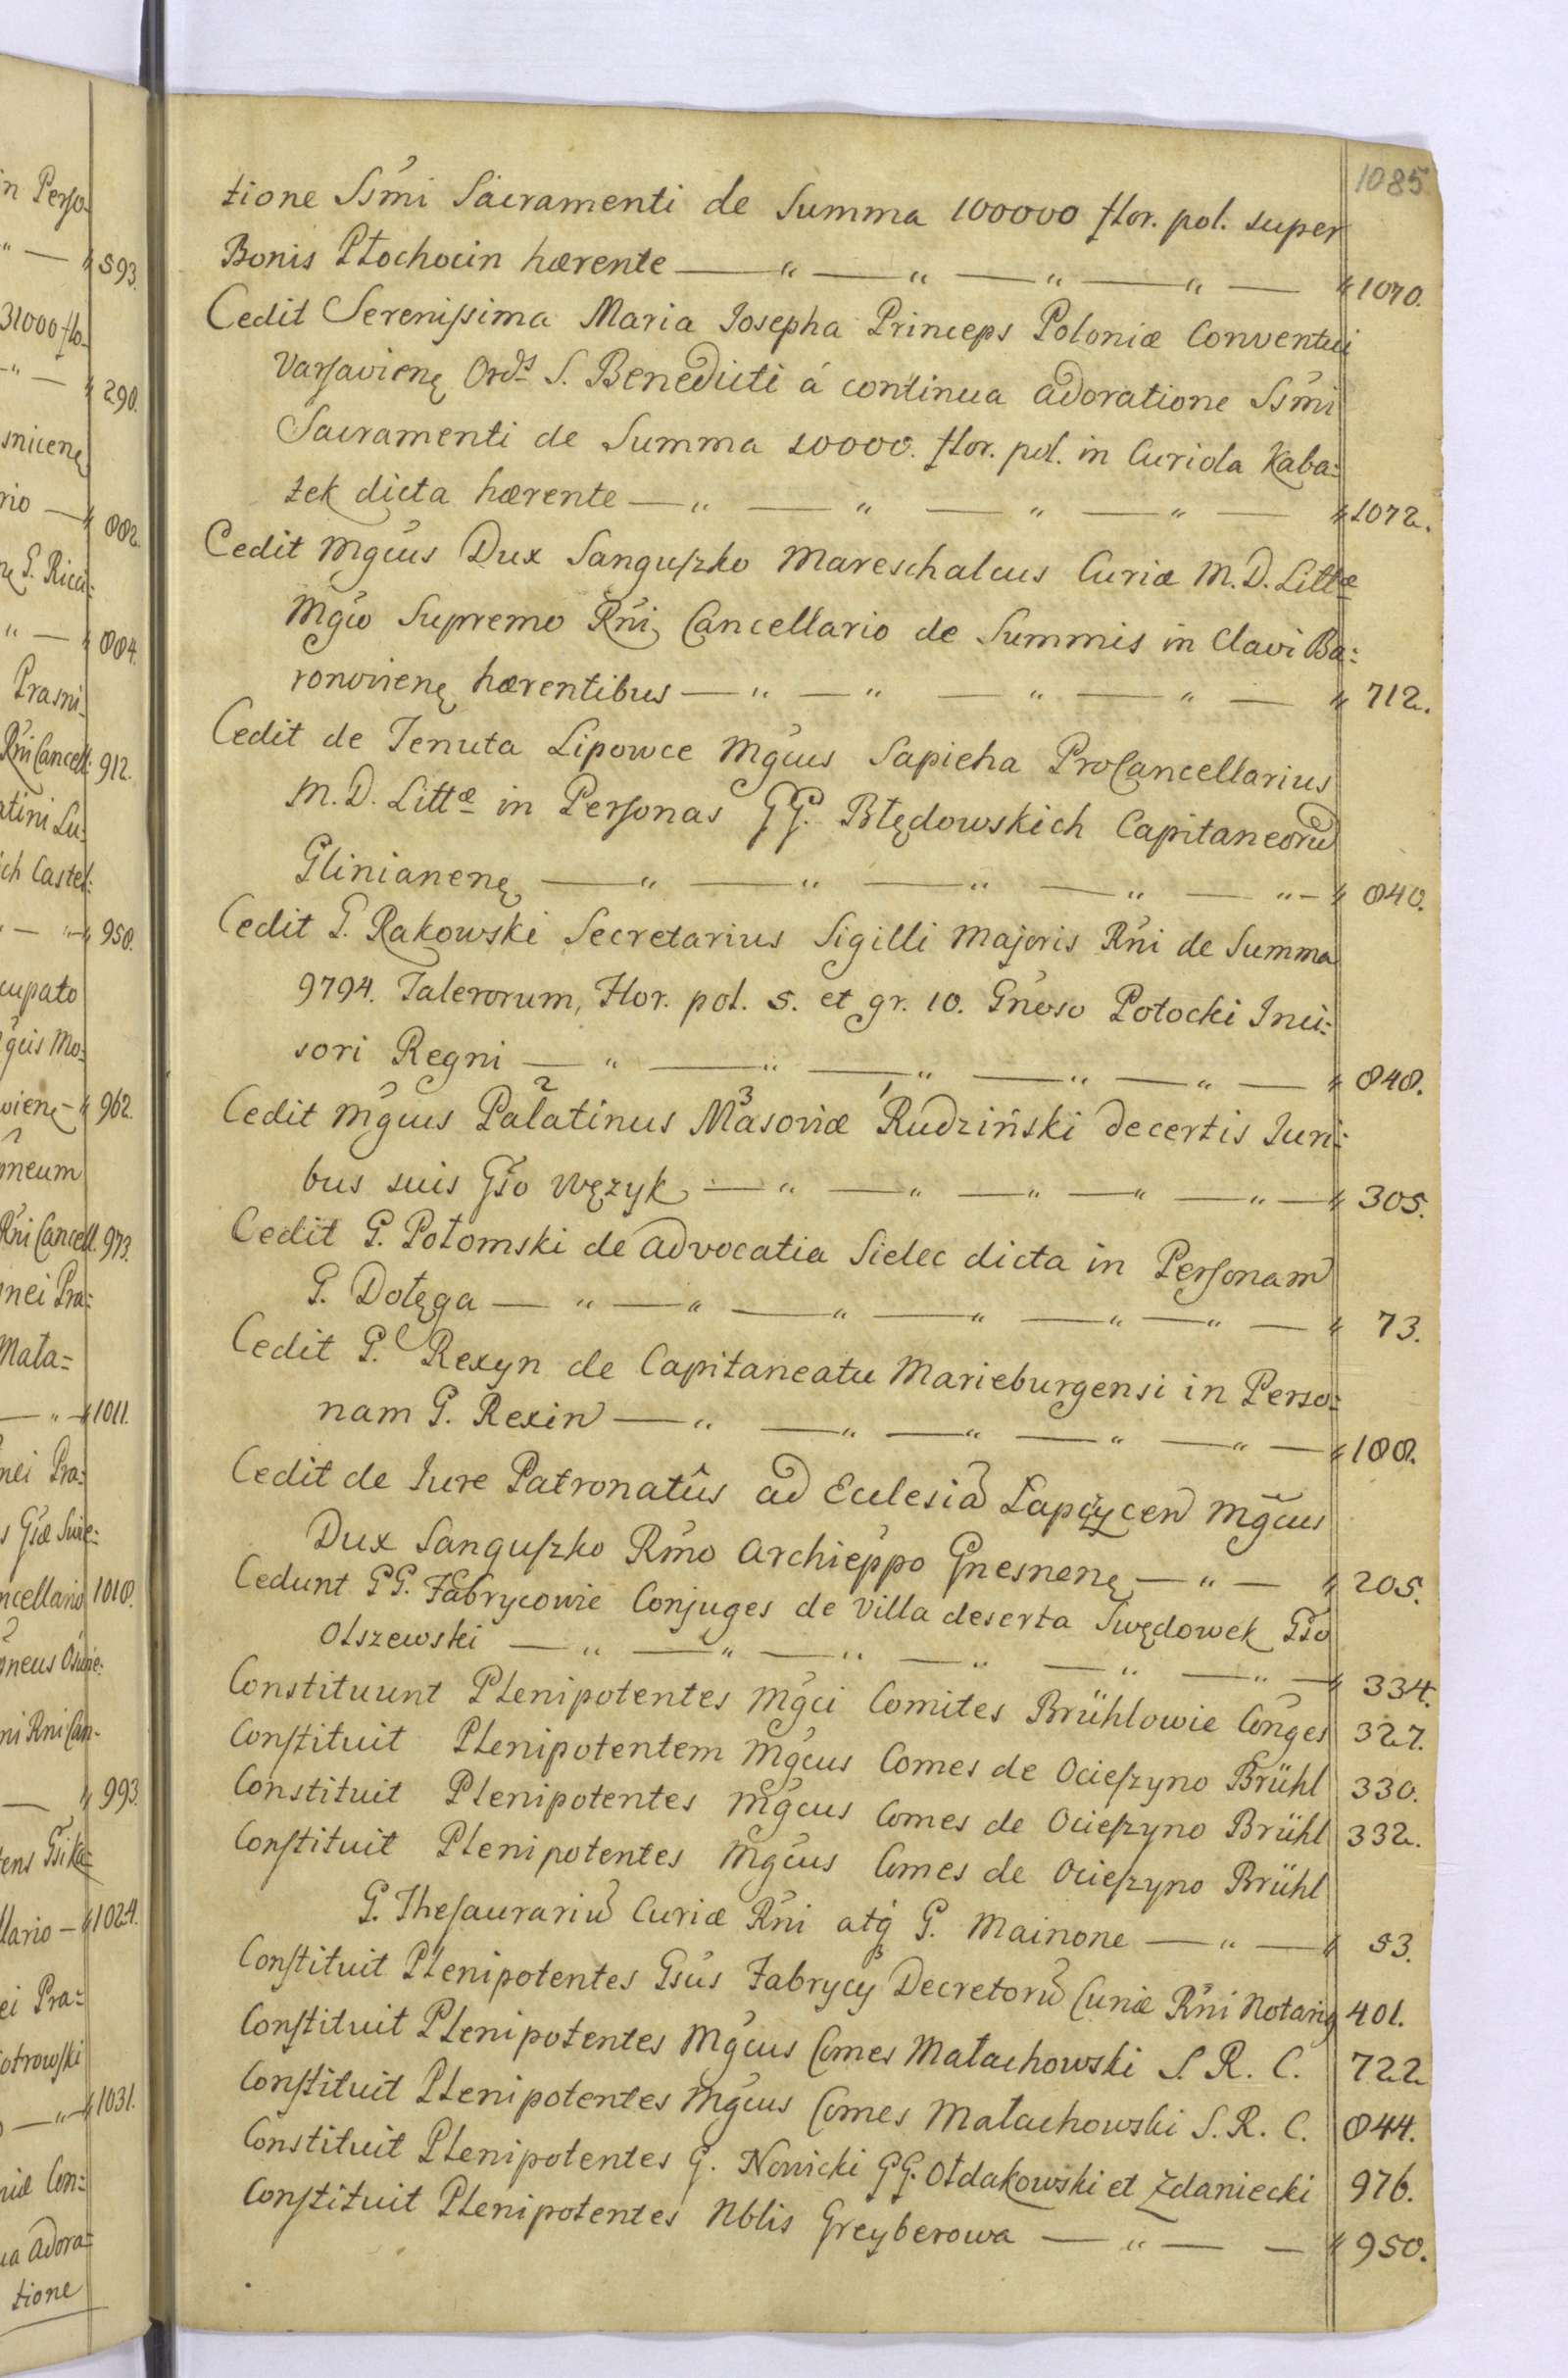 1085
tione Ssmi Sacramenti de Summa 100000 flor. pol. super
Bonis Płochocin hærente — " — " — " — " — " 1070.
Cedit Serenissima Maria Josepha Princeps Poloniæ Conventui
Varsavienę Ordis S. Benedicti á continua adoratione Ssmi
Sacramenti de Summa 10000. flor. pol. in Curiola Kaba=
tek dicta hærente — " — " — " — " — " 1072.
Cedit Mgcus Dux Sanguszko Mareschalcus Curiæ M. D. Littæ
Mgco Supremo Rni Cancellario de Summis in Clavi Ba=
ronovienę hærentibus — " — " — " — " — " 712.
Cedit de Tenuta Lipowce Mgcus Sapieha ProCancellarius
M. D. Littæ in Personas GG. Błędowskich Capitaneorũ
Glinianenę — " — " — " — " — " — " 840.
Cedit G. Rakowski Secretarius Sigilli Majoris Rni de Summa
9794. Talerorum, Flor. pol. 5. et gr. 10. Gneoso Potocki Inci=
sori Regni — " — " — " — " — " — " 848.
Cedit Mgcus Palatinus 2 Masoviæ 3 Rudziński 1 de certis Juri=
bus suis Gso Wężyk — " — " — " — " — " — " 305.
Cedit G. Połomski de Advocatia Sielec dicta in Personam
G. Dołęga — " — " — " — " — " — " — " 73.
Cedit G. Rexyn de Capitaneatu Marieburgensi in Perso=
nam G. Rexin — " — " — " — " — " — " 188.
Cedit de Jure Patronatûs ad Ecclesiã Łapczycen Mgcus
Dux Sanguszko Rmo Archieppo Gnesnenę — " — " 205.
Cedunt GG. Fabrycowie Conjuges de Villa deserta Swędowek Gso
Olszewski — " — " — " — " — " — " — " 334.
Constituunt Plenipotentes Mgci Comites Brühlowie Conges 327.
Constituit Plenipotentem Mgcus Comes de Ocieszyno Brühl 330.
Constituit Plenipotentes Mgcus Comes de Ocieszyno Brühl 332.
Constituit Plenipotentes Mgcus Comes de Ocieszyno Brühl
G. Thesaurariũ Curiæ Rni atq G. Mainone — " — " 53.
Constituit Plenipotentes Gsus Fabrycy Decretorũ Curiæ Rni Notariq 401.
Constituit Plenipotentes Mgcus Comes Małachowski S. R. C. 722
Constituit Plenipotentes Mgcus Comes Małachowski S. R. C. 844.
Constituit Plenipotentes G. Nowicki GG. Ołdakowski et Zdaniecki 976.
Constituit Plenipotentes Nblis Greyberowa — " — — " 950.
in Perso=
" — " 593.
31000 flo=
— " — " 290.
snicenę
rio — " 882.
nę G. Ricci=
" — " 884.
Prasni=
Rni Cancell. 912.
atini Lu=
ich Castel=
" — " — " 958.
cupato
gcis Mo=
vienę — " 962.
neum
Rni Cancell. 973.
nei Pra=
Mała=
— " — " 1011.
nei Pra=
s Gsæ Swie=
ncellario 1018.
neus Oswie=
ni Rni Can=
— " 993.
tens Gsi Ka=
llario — " 1024.
ei Pra=
iotrowski
o — " — " 1031.
niæ Con=
ua Adora=
tione